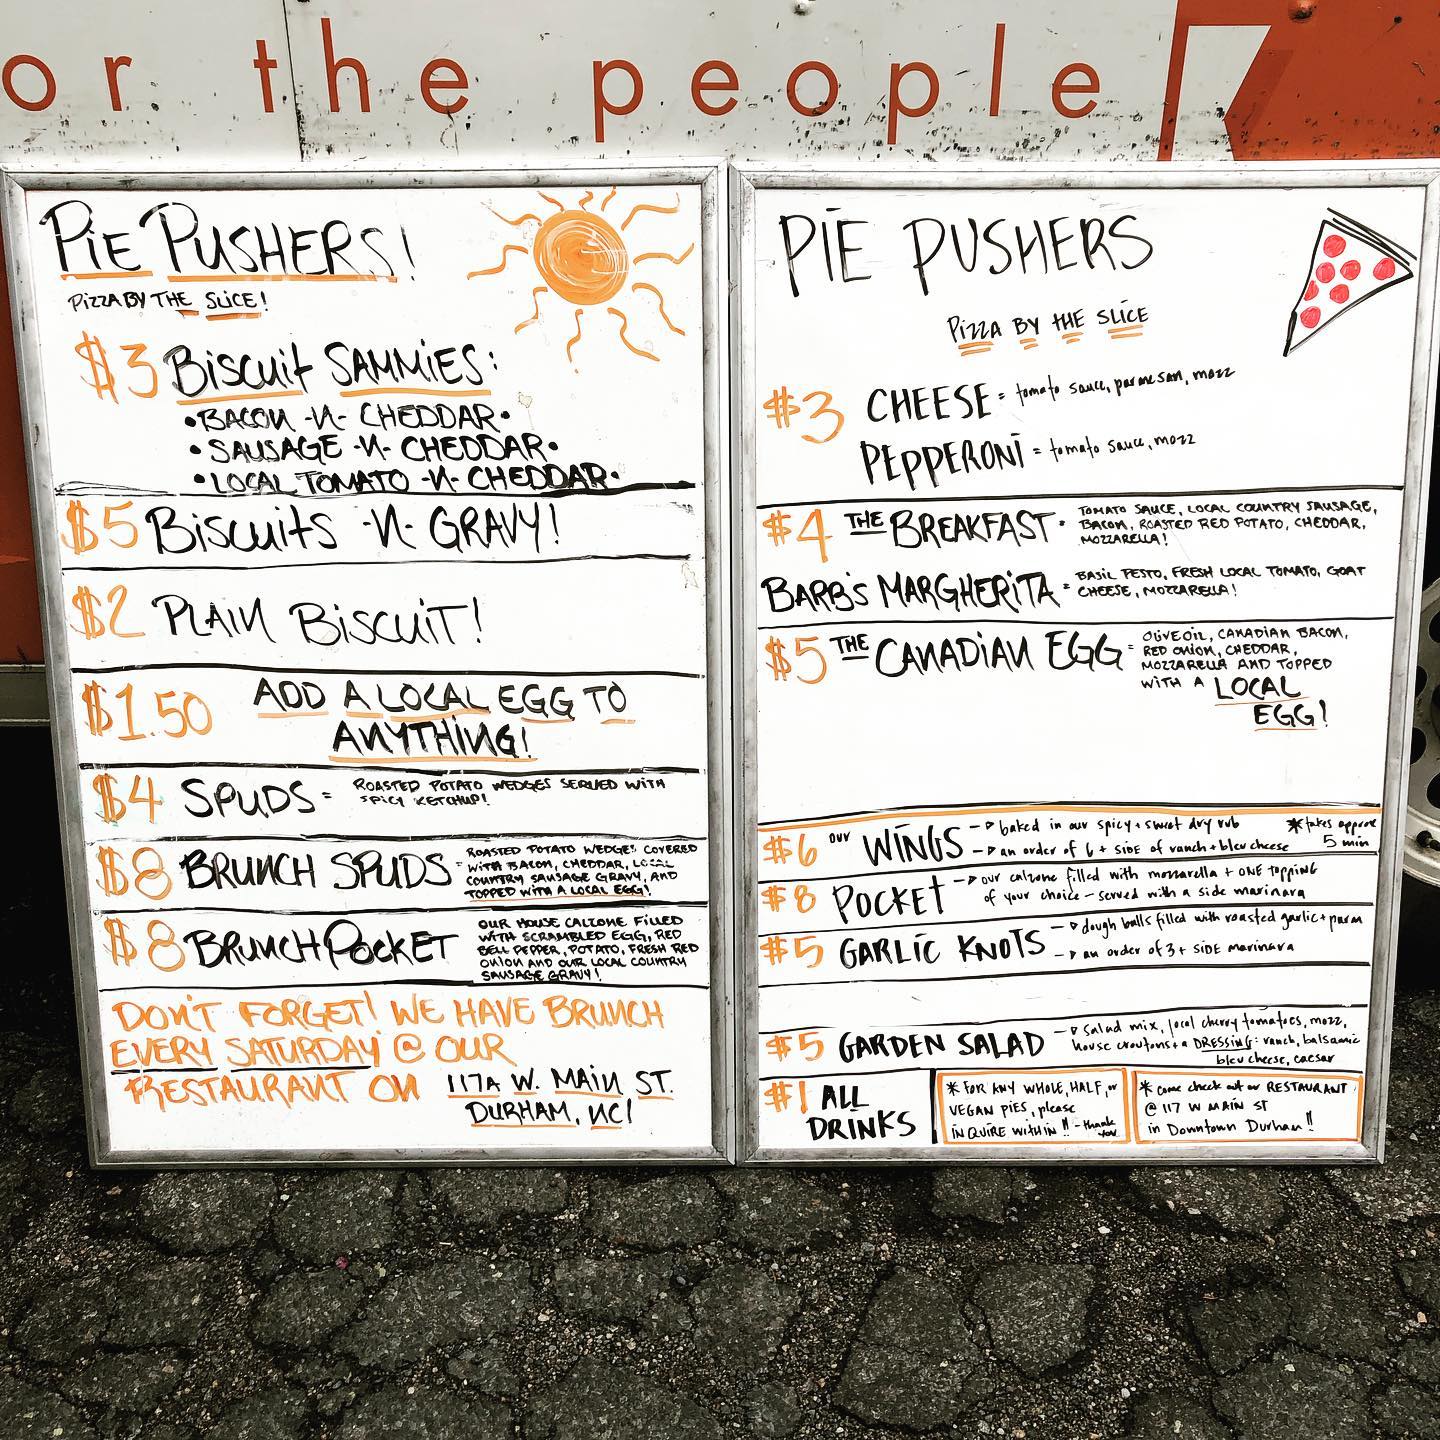 or the people
PIE PUSHERS!
PIZZA BY THE SLICE!
$3 BISCUIT SAMMIES:
•BACON -N- CHEDDAR•
•SAUSAGE -N- CHEDDAR•
•LOCAL TOMATO -N- CHEDDAR•
$5 BISCUITS -N- GRAVY!
$2 PLAIN BISCUIT!
$1.50 ADD A LOCAL EGG TO
ANYTHING!
$4 SPUDS = ROASTED POTATO WEDGES SERVED WITH
SPICY KETCHUP!
$8 BRUNCH SPUDS = ROASTED POTATO WEDGES COVERED
WITH BACON, CHEDDAR, LOCAL
COUNTRY SAUSAGE GRAVY, AND
TOPPED WITH A LOCAL EGG!
$8 BRUNCH POCKET OUR HOUSE CALZONE FILLED
WITH SCRAMBLED EGG, RED
BELL PEPPER, POTATO, FRESH RED
ONION AND OUR LOCAL COUNTRY
SAUSAGE GRAVY!
DON'T FORGET! WE HAVE BRUNCH
EVERY SATURDAY @ OUR
RESTAURANT ON 117A W. MAIN ST.
DURHAM, NC!
PIE PUSHERS
PIZZA BY THE SLICE
$3 CHEESE = tomato sauce, parmesan, mozz
PEPPERONI = tomato sauce, mozz
$4 THE BREAKFAST = TOMATO SAUCE, LOCAL COUNTRY SAUSAGE,
BACON, ROASTED RED POTATO, CHEDDAR,
MOZZARELLA!
BARB'S MARGHERITA = BASIL PESTO, FRESH LOCAL TOMATO, GOAT
CHEESE, MOZZARELLA!
$5 THE CANADIAN EGG = OLIVE OIL, CANADIAN BACON,
RED ONION, CHEDDAR,
MOZZARELLA AND TOPPED
WITH A LOCAL
EGG!
$6 our WINGS baked in our spicy + sweet dry rub *takes approx
an order of 6 + SIDE of ranch + bleu cheese 5 min
$8 POCKET our calzone filled with mozzarella + ONE TOPPING
of your choice - served with a side marinara
$5 GARLIC KNOTS dough balls filled with roasted garlic + parm
an order of 3 + SIDE marinara
$5 GARDEN SALAD salad mix, local cherry tomatoes, mozz,
house croutons + a DRESSING: ranch, balsamic
bleu cheese, caesar
$1 ALL
DRINKS
* FOR ANY WHOLE, HALF, or
VEGAN PIES, please
INQUIRE WITHIN!! - thank
you
* come check out our RESTAURANT
@ 117 W MAIN ST
in Downtown Durham!!